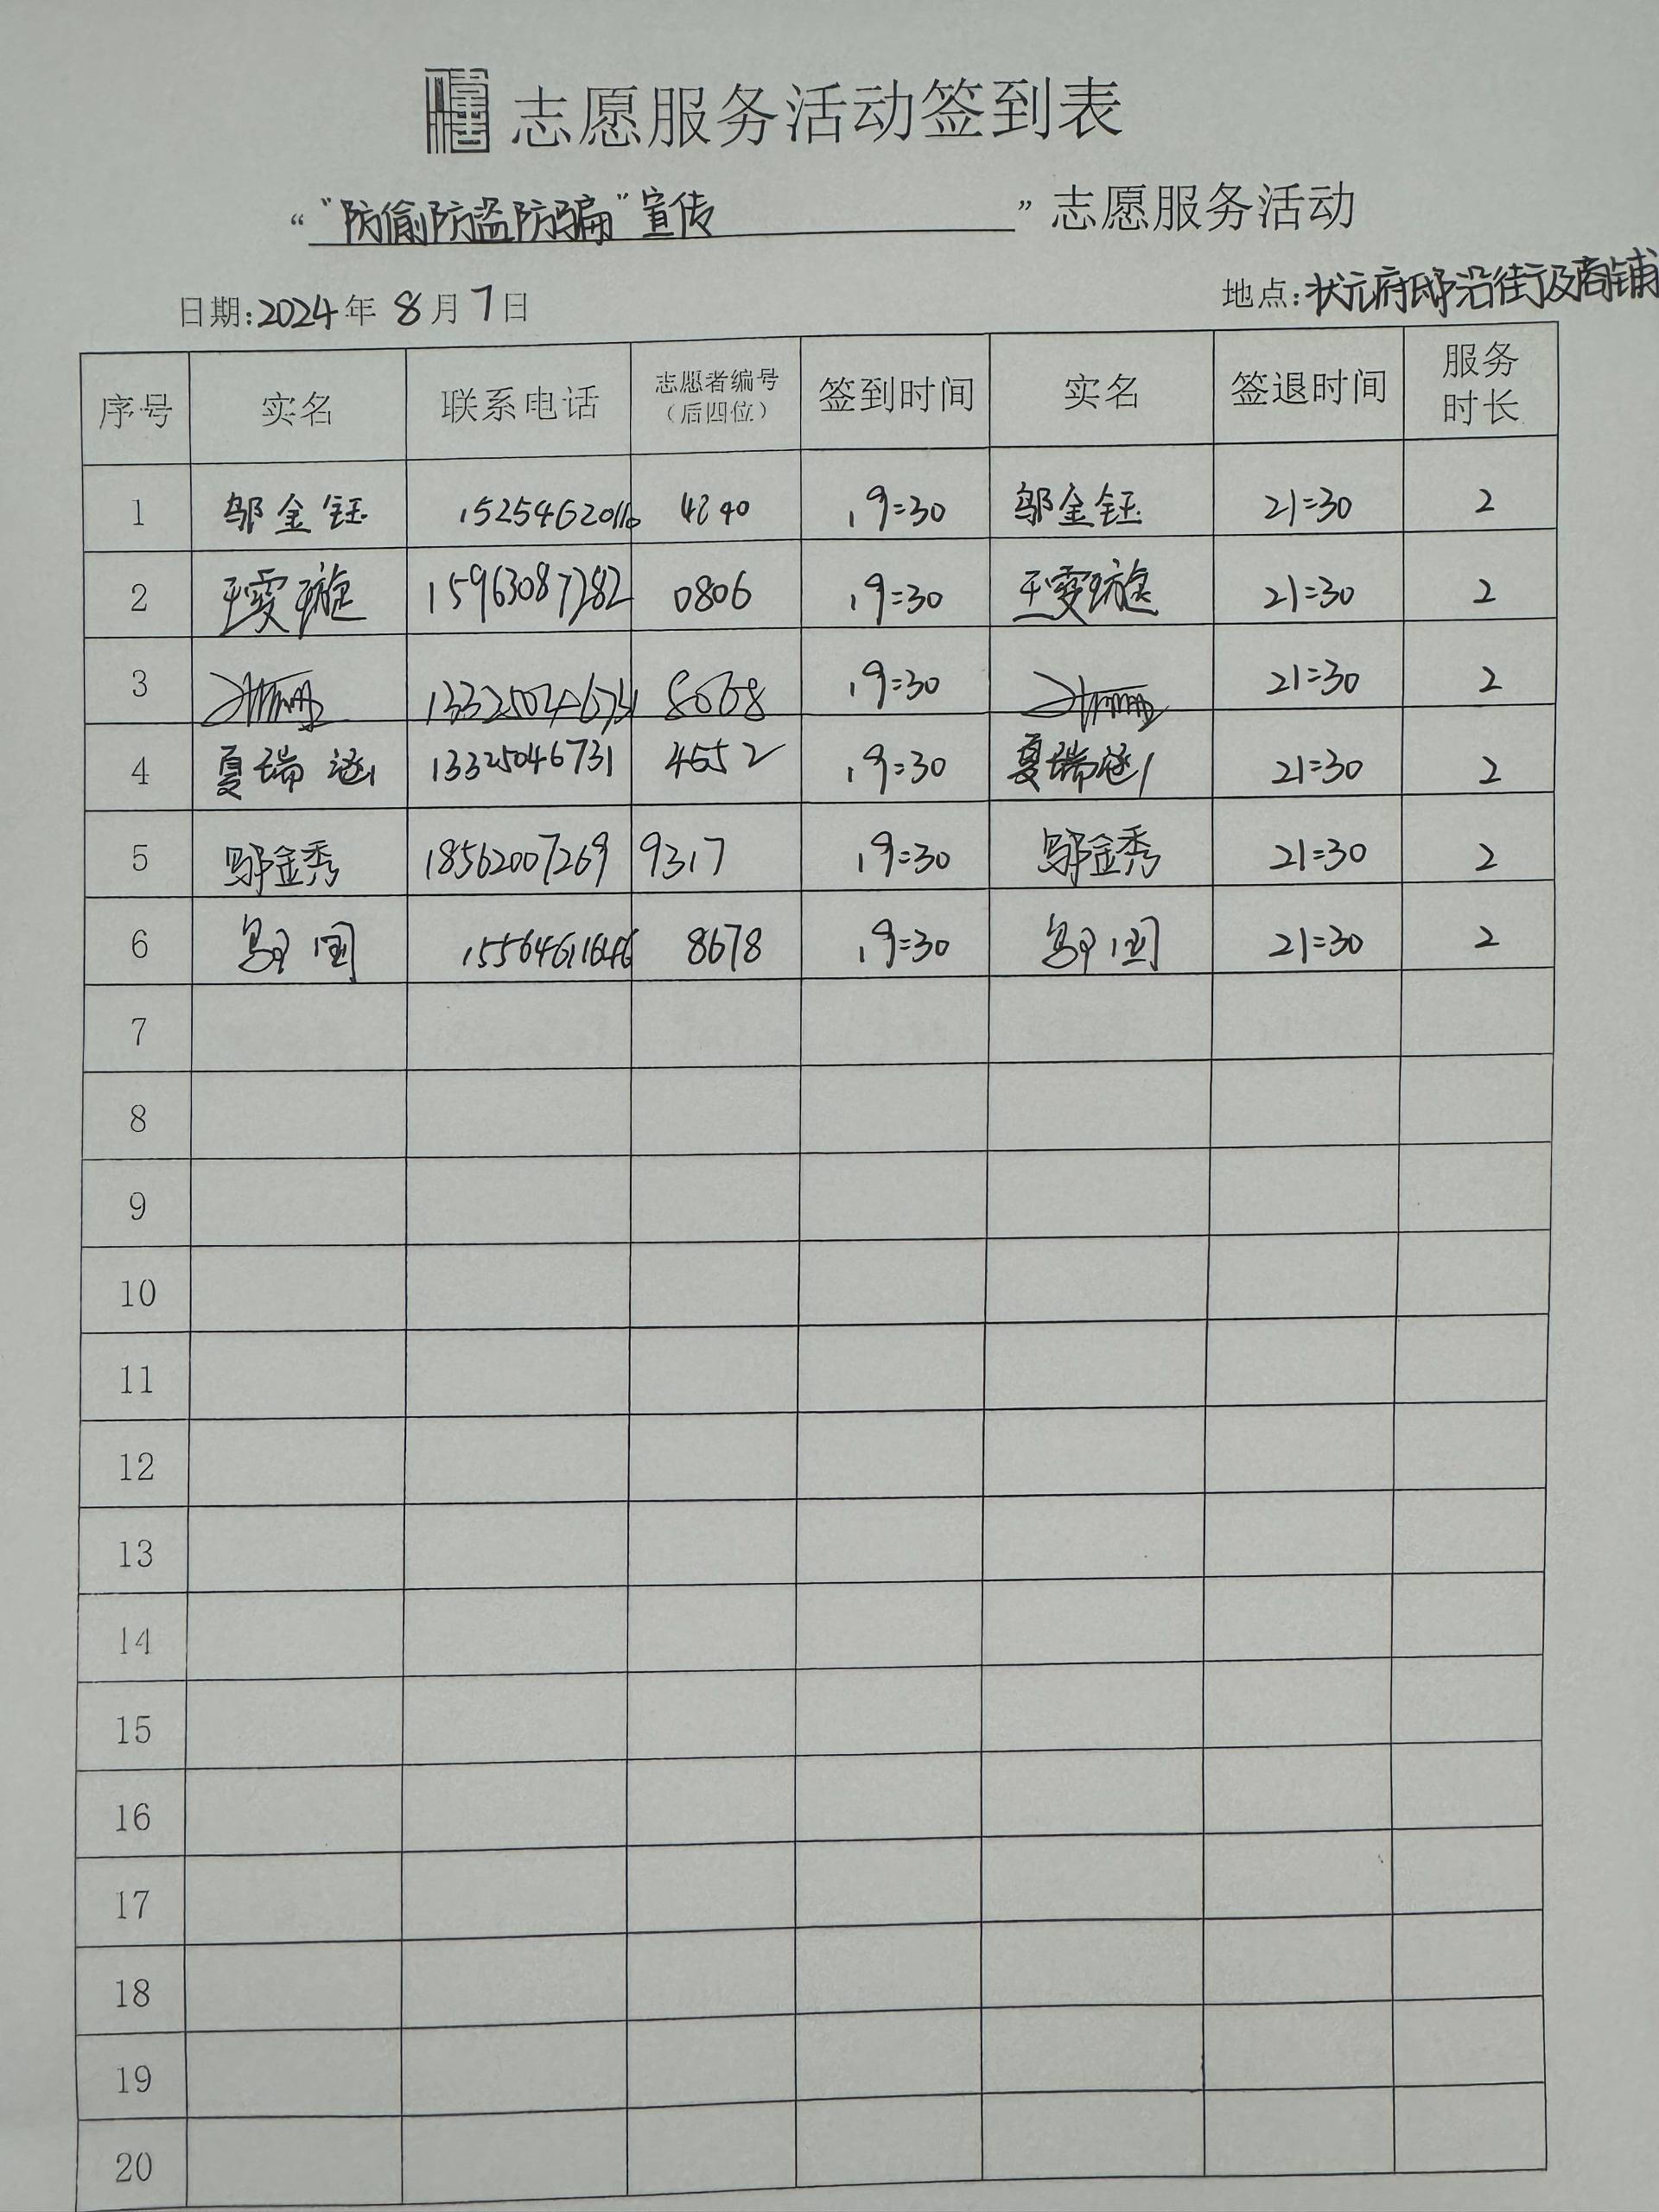 志愿服务活动签到表
“"防偷防盗防骗"宣传” 志愿服务活动
日期:2024年8月7日 地点:状元府邸沿街及商铺
序号 实名 联系电话 志愿者编号（后四位） 签到时间 实名 签退时间 服务时长
1 邬金钰 15254620116 4240 19:30 邬金钰 21:30 2
2 王雯璇 15963087282 0806 19:30 王雯璇 21:30 2
3 8068 19:30 21:30 2
4 夏瑞 13325046731 4652 19:30 夏瑞 21:30 2
5 邬金秀 18562007269 9317 19:30 邬金秀 21:30 2
6 国 15564611646 8678 19:30 国 21:30 2
7
8
9
10
11
12
13
14
15
16
17
18
19
20